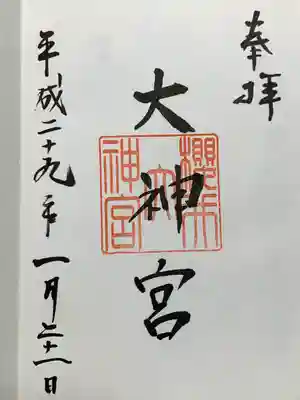 奉拝
大神宮
神宮
平成二十九年一月二十一日